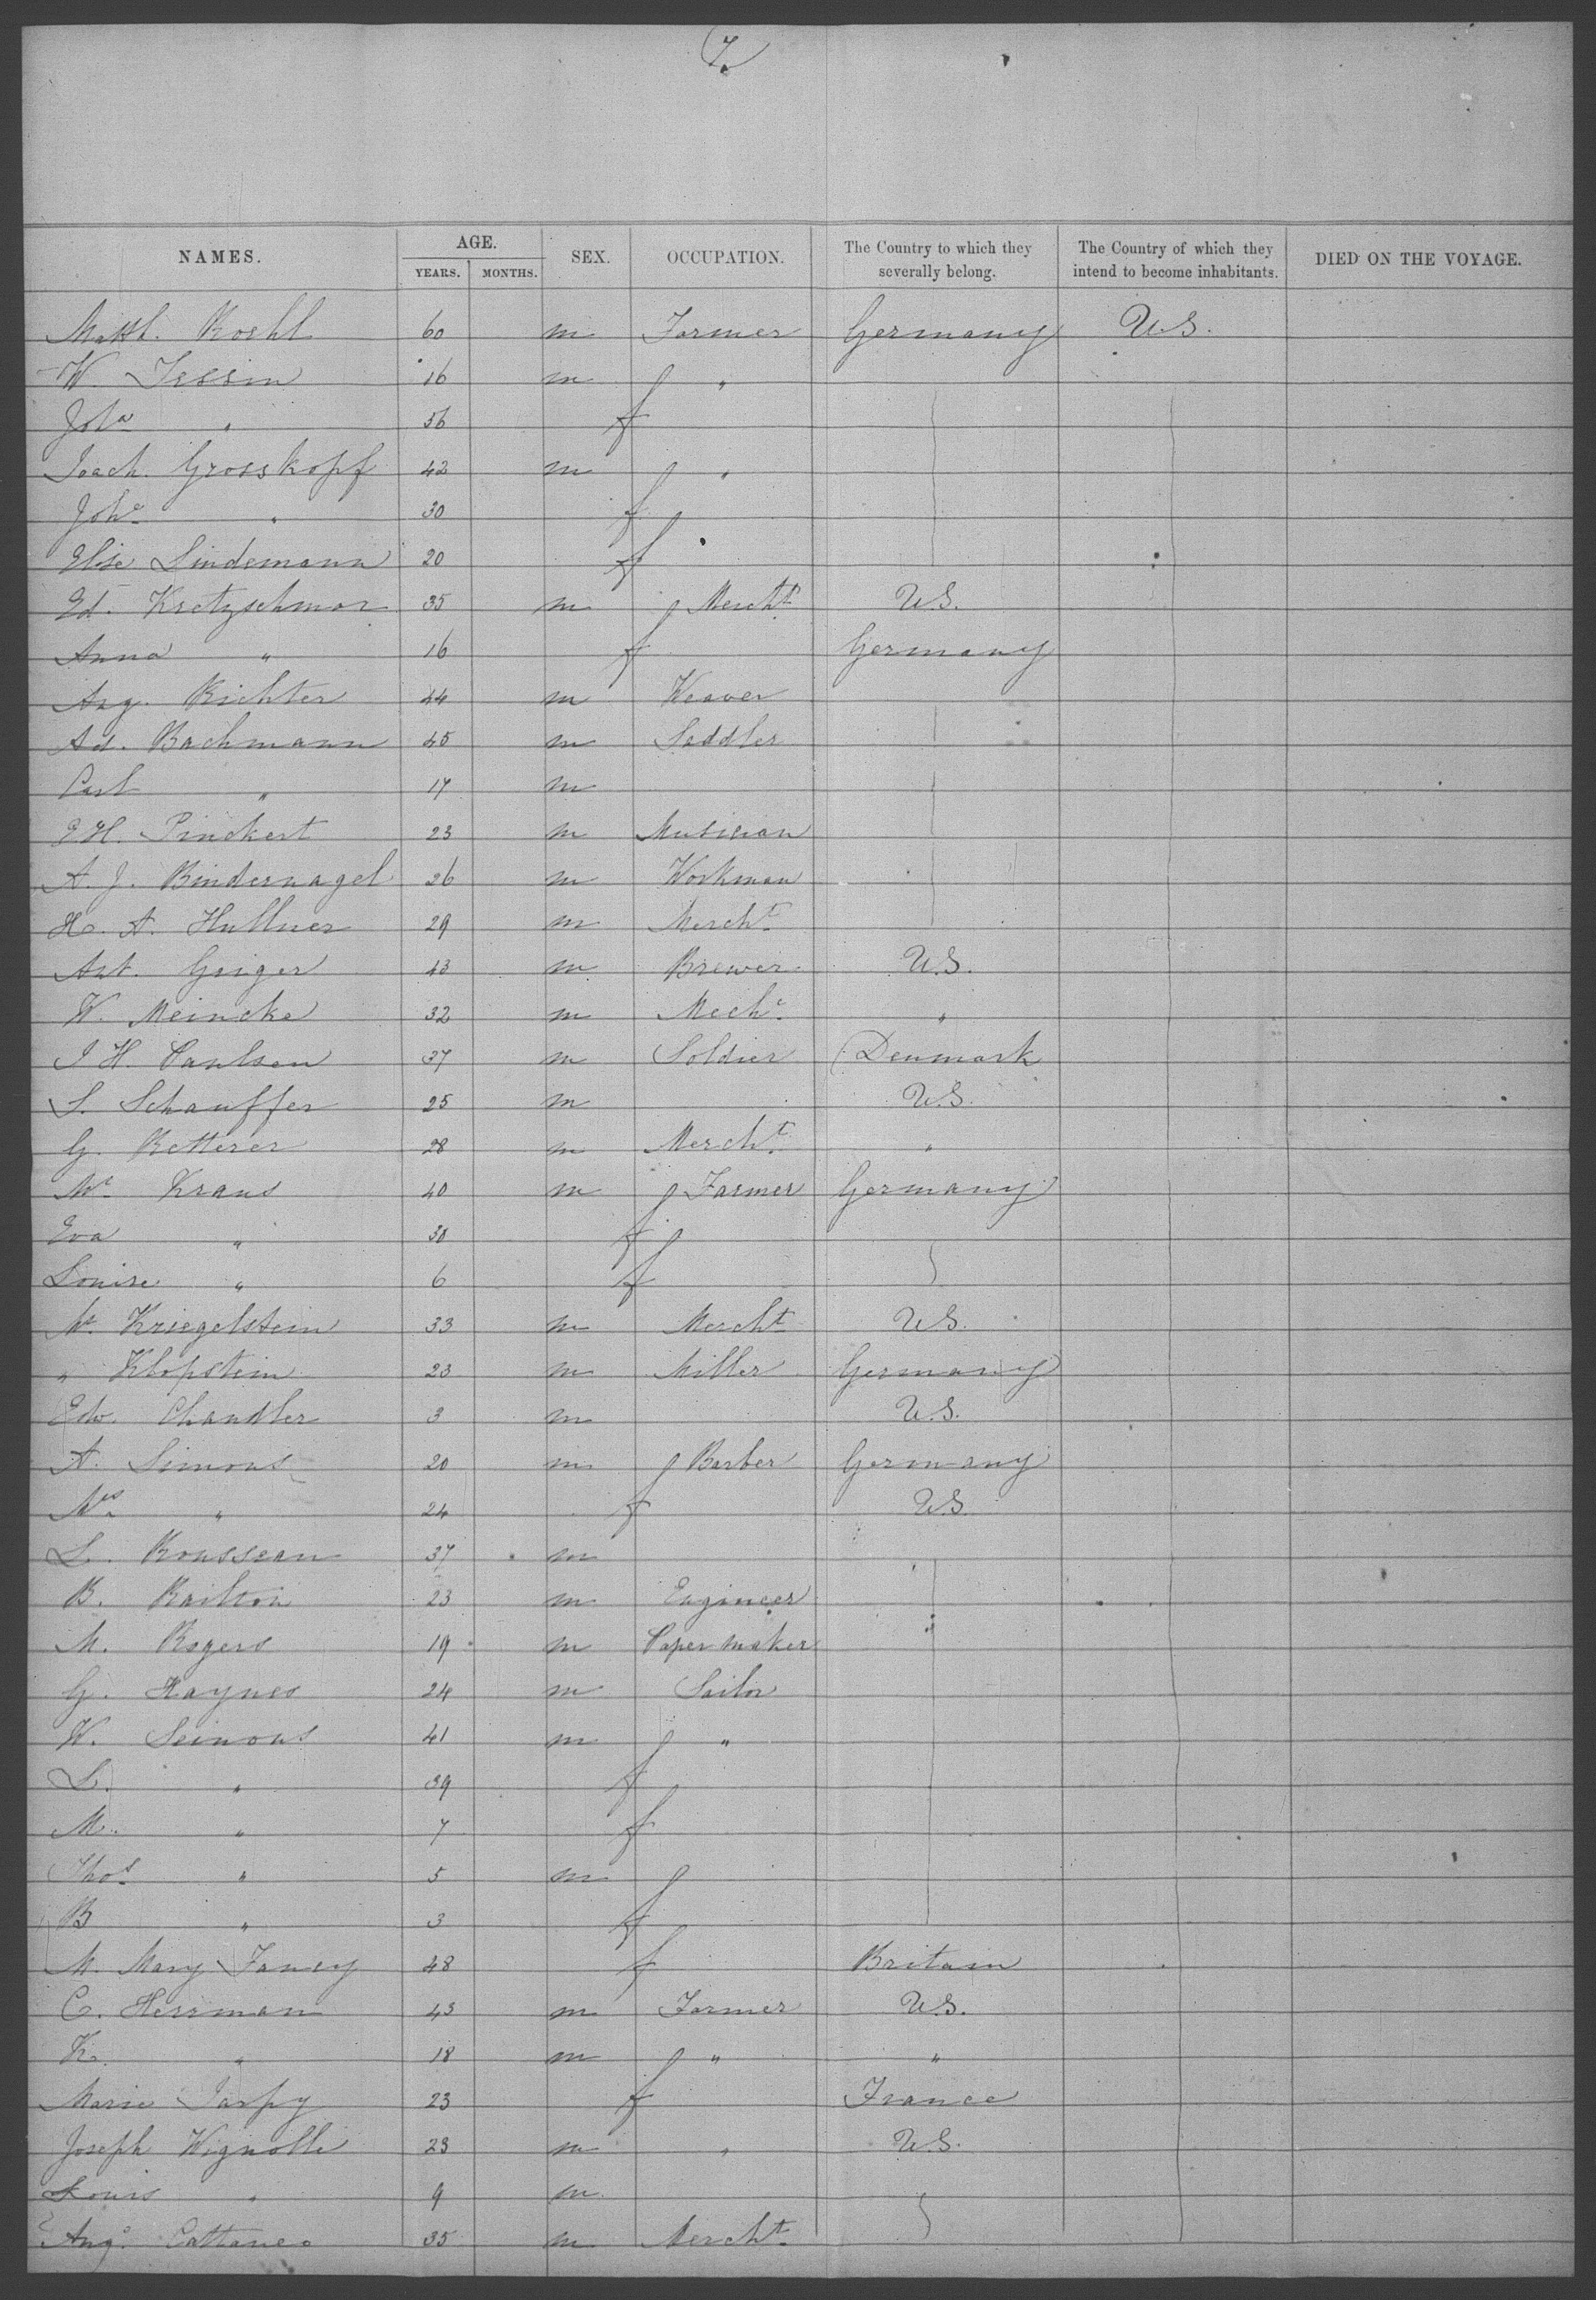 7.
NAMES. AGE. YEARS. MONTHS. SEX. OCCUPATION. The Country to which they severally belong. The Country of which they intend to become inhabitants. DIED ON THE VOYAGE.
Matth. Koehl 60 m Farmer Germany U.S.
W. Jessin 16 m "
Joha " 56 f
Joach. Grosskopf 42 m "
Johe " 30 f
Elise Lindemann 20 f
Ed. Kretzschmar 35 m Mercht U.S.
Anna " 16 f Germany
Aug. Richter 44 m Weaver
Ad. Bachmann 45 m Saddler
Carl " 17 m
E H. Pinckert 23 m Musician
A. J. Bindernagel 26 m Workman
H. A. Hullner 29 m Mercht
Ant. Geiger 43 m Brewer U.S.
W. Meincke 32 m Mechc "
J H. Paulsen 37 m Soldier Denmark
S. Schauffer 25 m U.S.
G. Ketterer 28 m Mercht "
Mr Kraus 40 m Farmer Germany
Eva " 30 f
Louise " 6 f
Mr Kriegelstein 33 m Mercht U.S.
" Klopstein 23 m Miller Germany
Edw. Chandler 3 m U.S.
A. Simons 20 m Barber Germany
Mrs " 24 f U.S.
L. Rousseau 37 m
B. Railton 23 m Engineer
M. Rogers 19 m Paper maker
G. Haynes 24 m Sailor
W. Seimons 41 m "
L. " 39 f
M. " 7 f
Thos " 5 m
B " 3 f
M. Mary Fancy 48 f Britain
C. Herrman 43 m Farmer U.S.
K. " 18 m " "
Marie Jarpy 23 f France
Joseph Vignolli 23 m " U.S.
Louis " 9 m
Ango Cattaneo 35 m Mercht